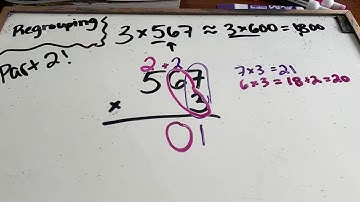 Regrouping
Part 2!
3 × 567 ≈ 3×600 = 1800
2 +2
567
× 3
01
7×3 = 21
6×3 = 18+2=20